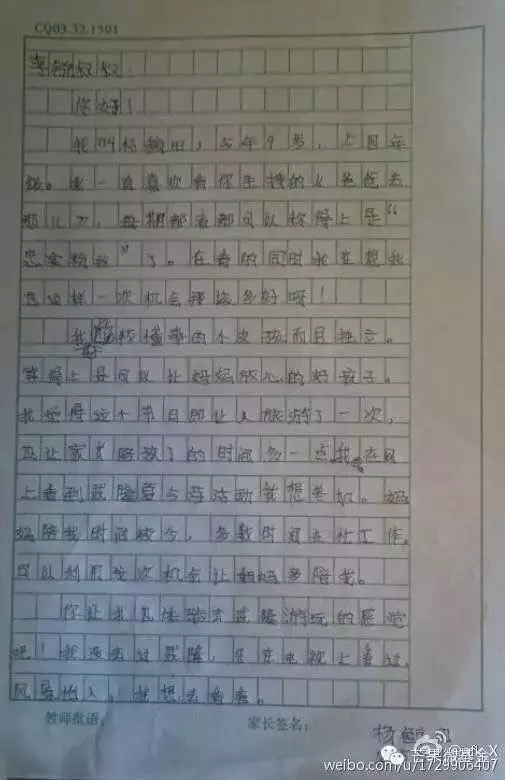 CQ03.32.1501
李锐叔叔:
你好!
我叫杨 ,今年9岁,上四年
级。我一直喜欢看你主持的《爸爸去
那儿》,每期都看都可以称得上是“
忠实粉丝”了。在看的同时我在想我
有这样一次机会 该多好呀!
我 较懂事的小女孩而且独立。
算得上是可以让妈妈放心的好孩子。
我觉得这个节目即让人旅游了一次,
也让家长陪孩子的时间多一点我会在网
上看到武隆夏 营活动我想参加。妈
妈陪我时间较少,多数时间在忙工作,
可以利用这次机会让妈妈多陪我。
你让我具体 去武隆游玩的感觉
吧!我没去过武隆,只在电视上看过,
风景怡人,我想去看看。
教师批语: 家长签名:
杨
@ fk_X
芒果微基金
weibo.com/u/1729906407